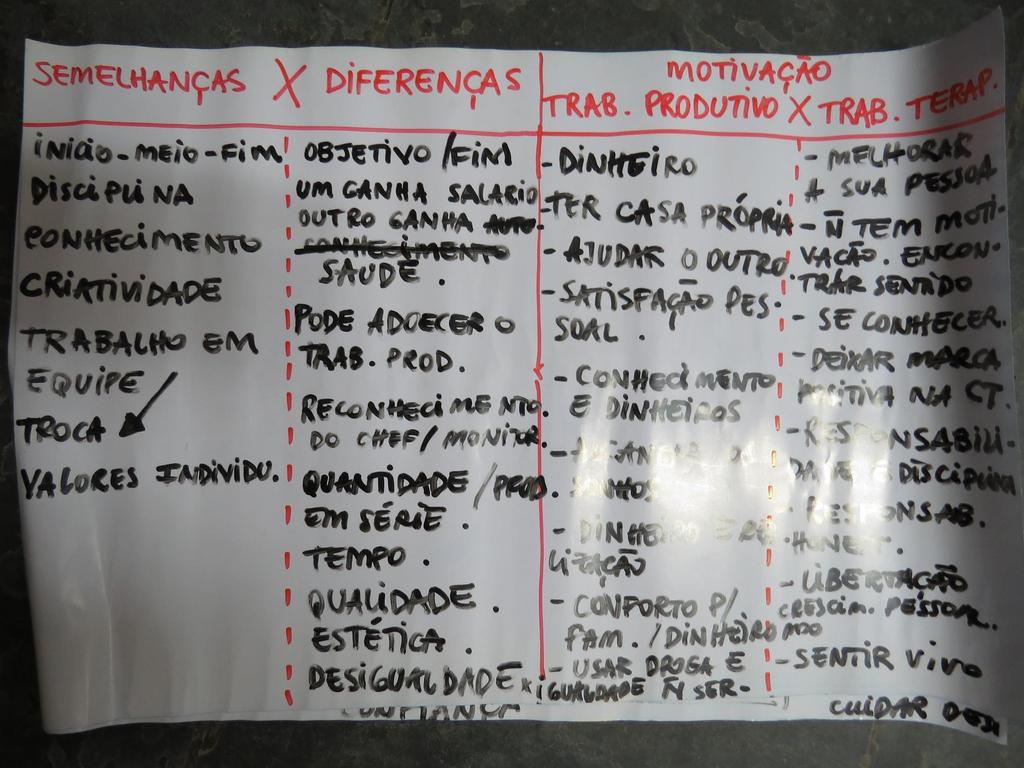 SEMELHANÇAS X DIFERENÇAS
INICIO-MEIO-FIM
DISCIPLINA
CONHECIMENTO
CRIATIVIDADE
TRABALHO EM
EQUIPE
TROCA
VALORES INDIVIDU.
OBJETIVO/FIM
UM GANHA SALARIO
OUTRO GANHA AUTO-
CONHECIMENTO
SAUDE.
PODE ADOECER O
TRAB. PROD.
RECONHECIMENTO.
DO CHEF/MONITOR.
QUANTIDADE/PROD.
EM SÉRIE.
TEMPO.
QUALIDADE.
ESTÉTICA.
DESIGUALDADE x IGUALDADE
CONFIANÇA
MOTIVAÇÃO
TRAB. PRODUTIVO X TRAB. TERAP.
- DINHEIRO
- TER CASA PRÓPRIA
- AJUDAR O OUTRO
- SATISFAÇÃO PES-
SOAL.
- CONHECIMENTO
E DINHEIROS
SONHOS
- DINHEIRO E RE
LIZAÇÃO
- CONFORTO P/.
FAM./DINHEIRO
- USAR DROGA E
Ñ SER-
- MELHORAR
A SUA PESSOA
- Ñ TEM MOTI-
VAÇÃO. ENCON-
TRAR SENTIDO
- SE CONHECER.
- DEIXAR MARCA
POSITIVA NA CT.
- RESPONSABILI-
DADE E DISCIPLINA
- RESPONSAB.
HONEST.
- LIBERTAÇÃO
CRESCIM. PESSOAL.
- SENTIR VIVO
CUIDAR DE SI